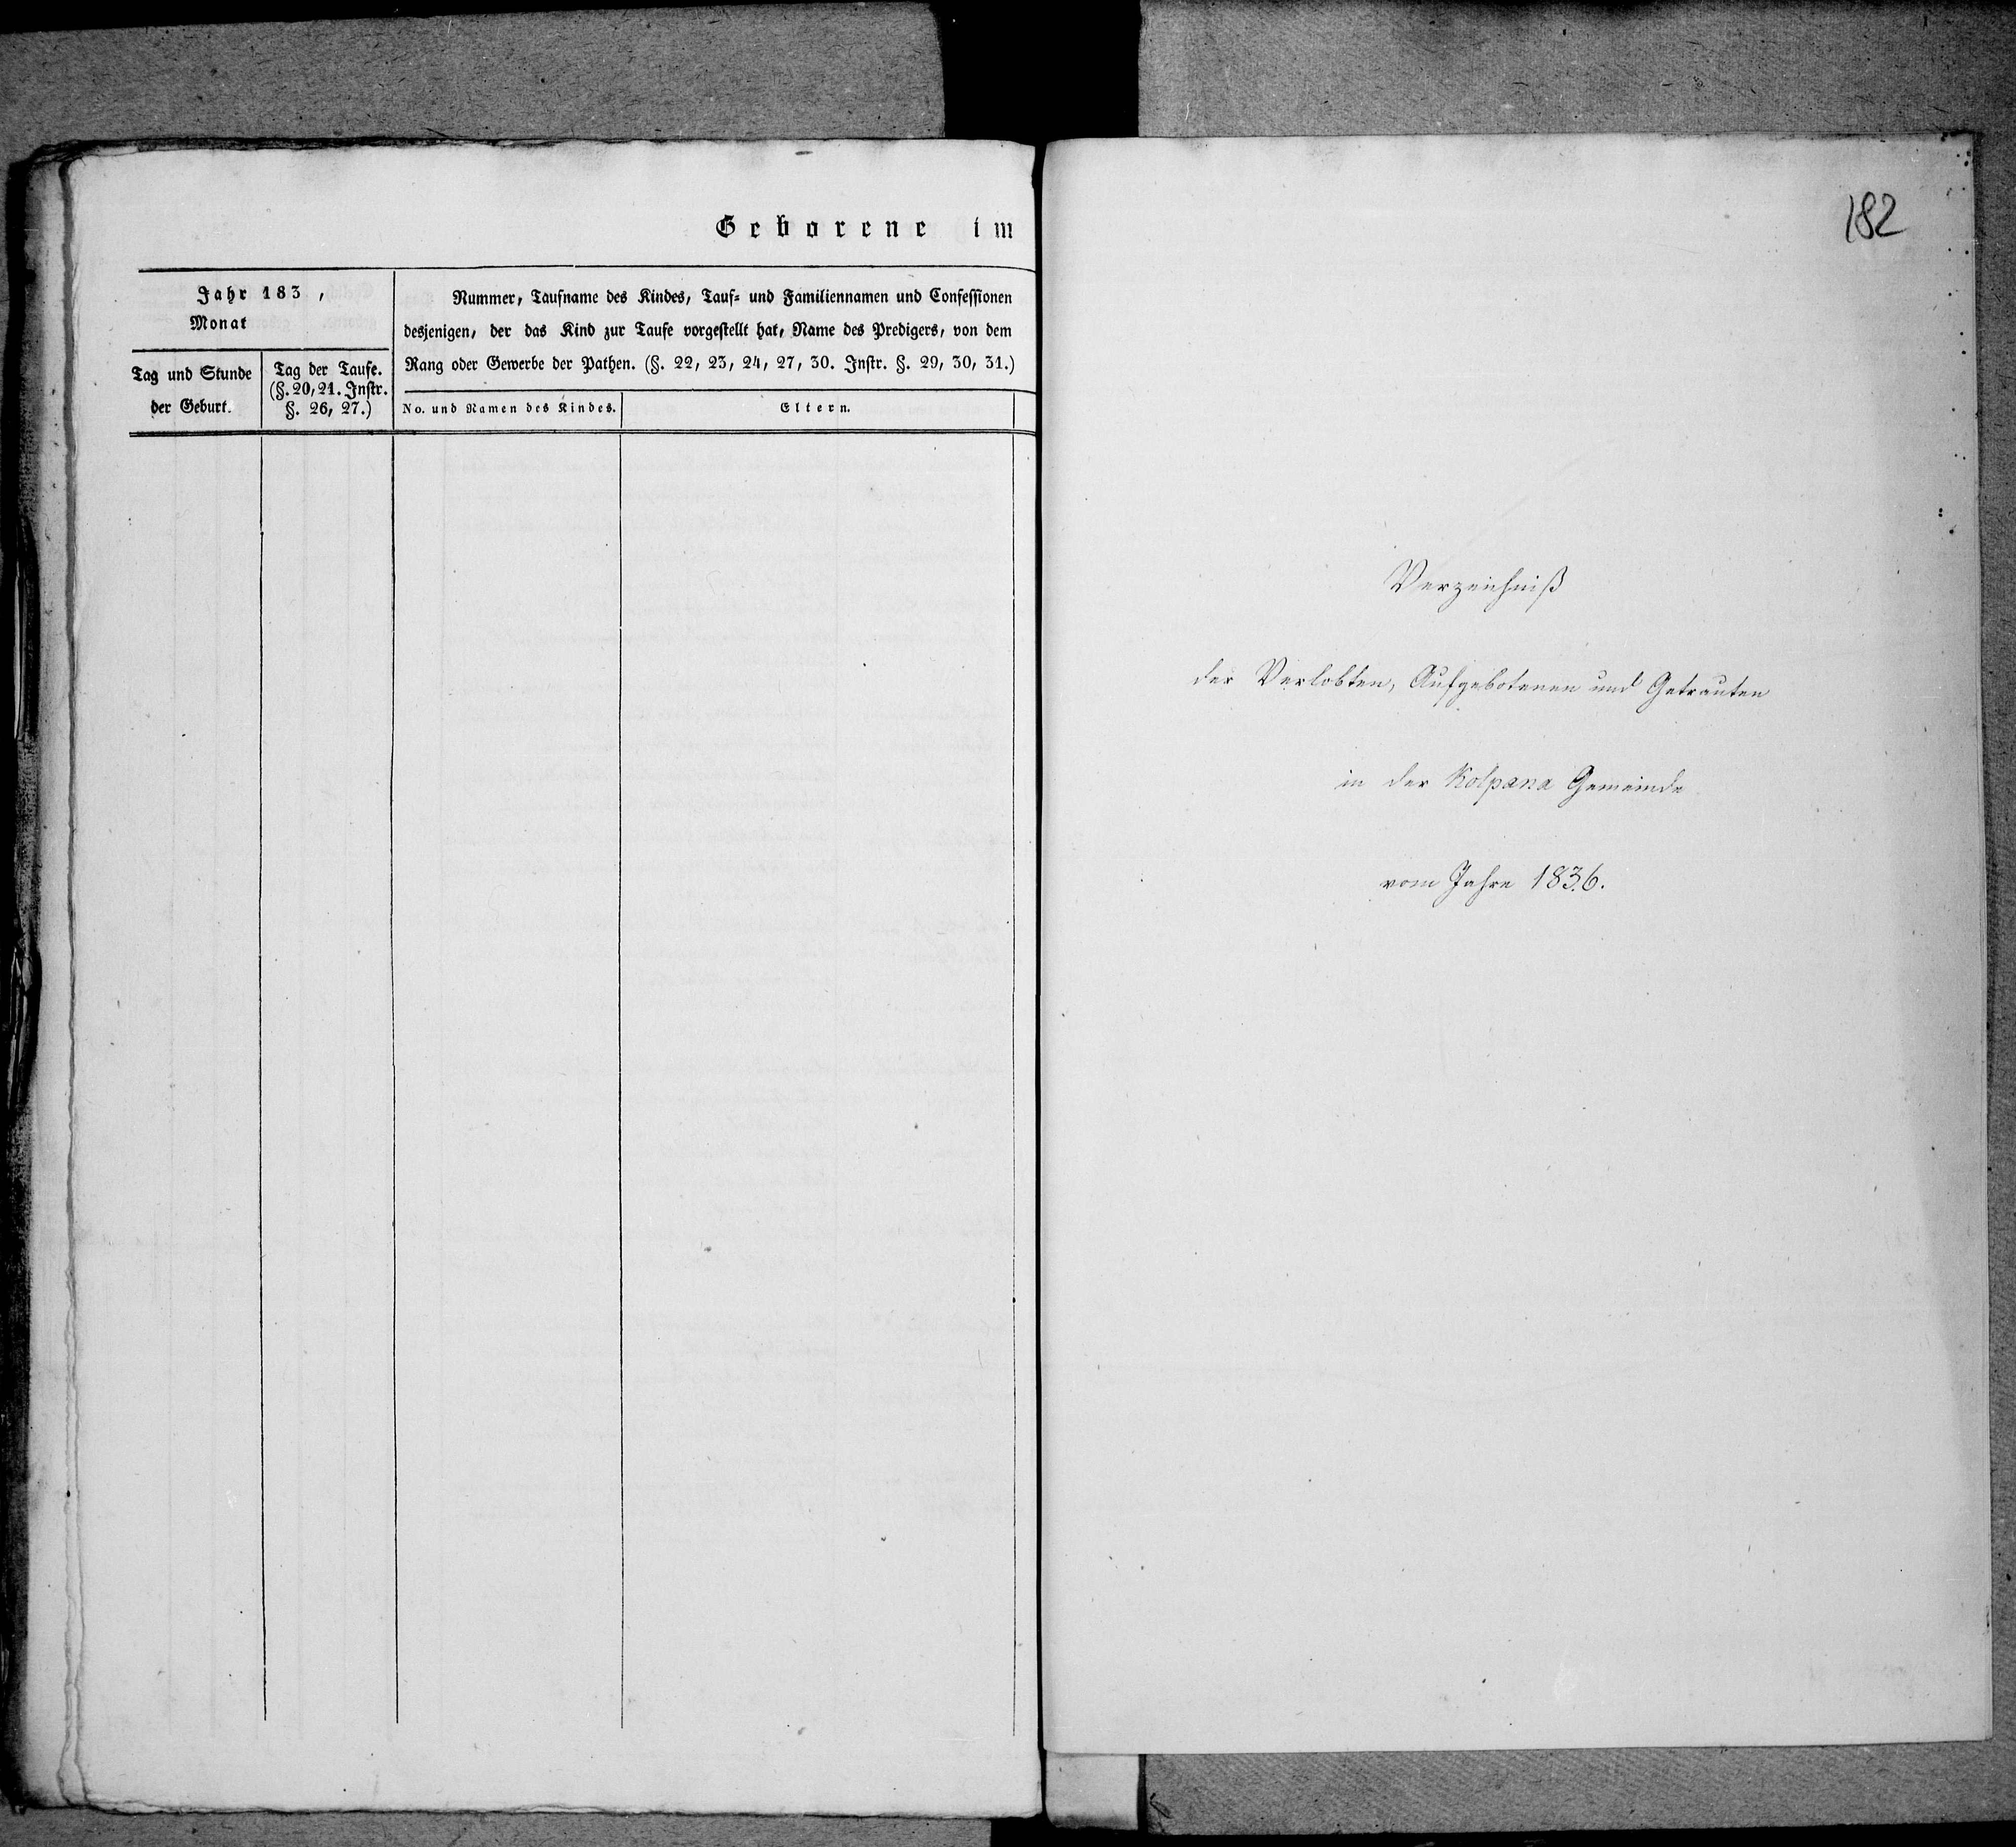 Geborene im
Jahr 183 ,
Monat
Tag und Stunde
der Geburt.
Tag der Taufe.
(§. 20, 21. Instr.
§. 26, 27.)
Nummer, Taufname des Kindes, Tauf- und Familiennamen und Confessionen
desjenigen, der das Kind zur Taufe vorgestellt hat, Name des Predigers, von dem
Rang oder Gewerbe der Pathen. (§. 22, 23, 24, 27, 30. Instr. §. 29, 30, 31.)
No. und Namen des Kindes.
Eltern.
182
Verzeichniß
der Verlobten, Aufgebotenen und Getrauten
in der Kolpana Gemeinde
vom Jahre 1836.